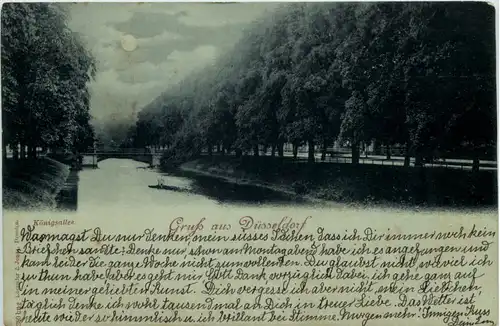 Königsallee.
Gruß aus Düsseldorf
Warmagst Du nur denken, mein süsses Täschen, dass ich Dir immer noch kein
Briefchen sandte. Denke nur, schon am Montag abend habe ich es angefangen und
kam leider die ganze Woche nicht sinnvollendung. Du glaubst nicht, wie viel ich
zu thun habe. Jetzt es geht mir Gott Dank vorzüglich dabei, ich gehe ganz auf
in meiner geliebten Kunst. Dich vergesse ich aber nicht, mein Liebchen,
täglich denke ich wohl tausendmal an Dich in treuer Liebe. Das Wetter ist
heute wieder so himmlisch u. ich brillant bei Stimme. Morgen mehr. Innigen Kuss